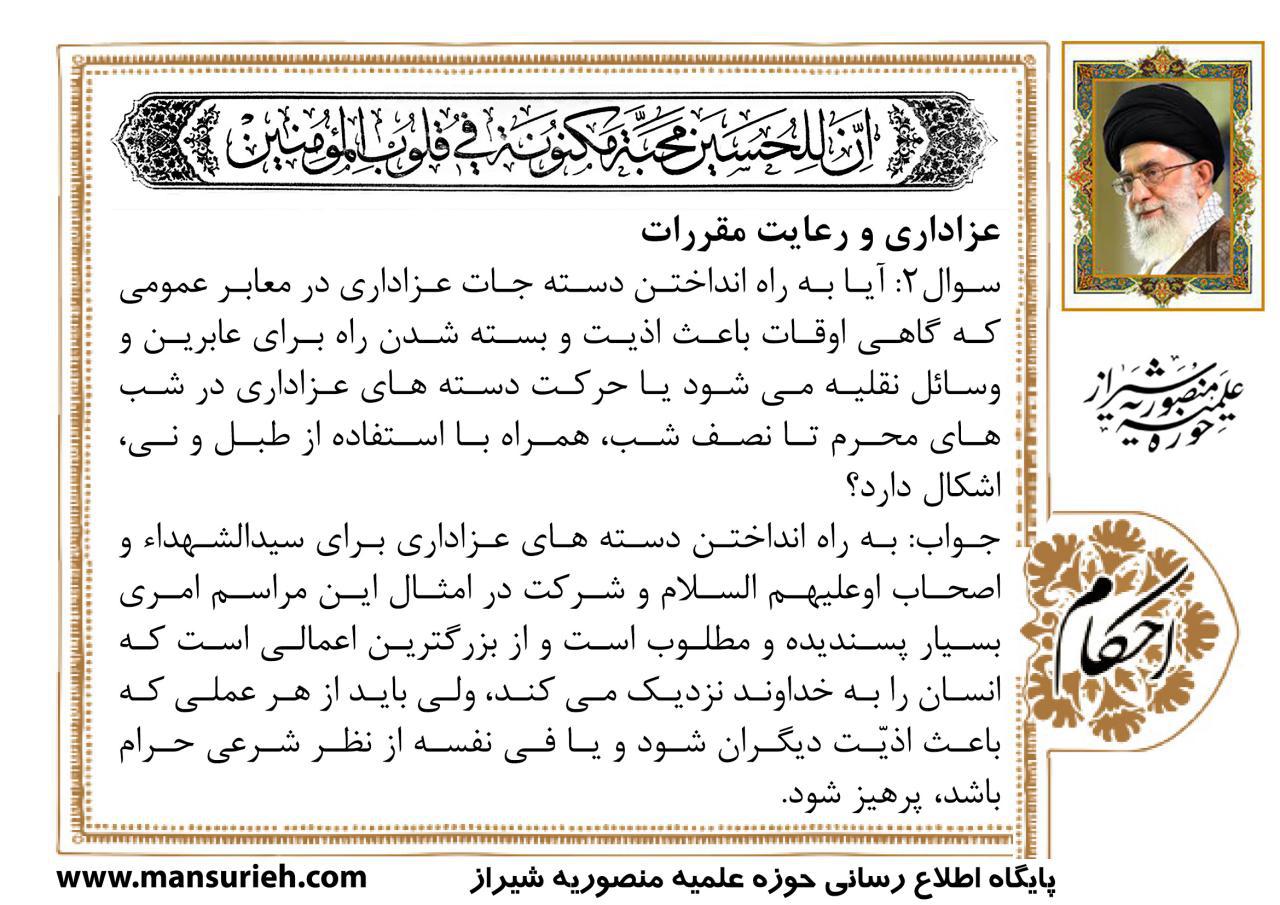 اِنَّ لِلْحُسَیْنِ مَحَبَّةً مَکْنُونَةً فی قُلُوبِ الْمُؤْمِنینَ
عزاداری و رعایت مقررات
سوال۲: آیا به راه انداختن دسته جات عزاداری در معابر عمومی
که گاهی اوقات باعث اذیت و بسته شدن راه برای عابرین و
وسائل نقلیه می شود یا حرکت دسته های عزاداری در شب
های محرم تا نصف شب، همراه با استفاده از طبل و نی،
اشکال دارد؟
جواب: به راه انداختن دسته های عزاداری برای سیدالشهداء و
اصحاب اوعلیهم السلام و شرکت در امثال این مراسم امری
بسیار پسندیده و مطلوب است و از بزرگترین اعمالی است که
انسان را به خداوند نزدیک می کند، ولی باید از هر عملی که
باعث اذیّت دیگران شود و یا فی نفسه از نظر شرعی حرام
باشد، پرهیز شود.
حوزه علمیه منصوریه شیراز
احکام
پایگاه اطلاع رسانی حوزه علمیه منصوریه شیراز
www.mansurieh.com